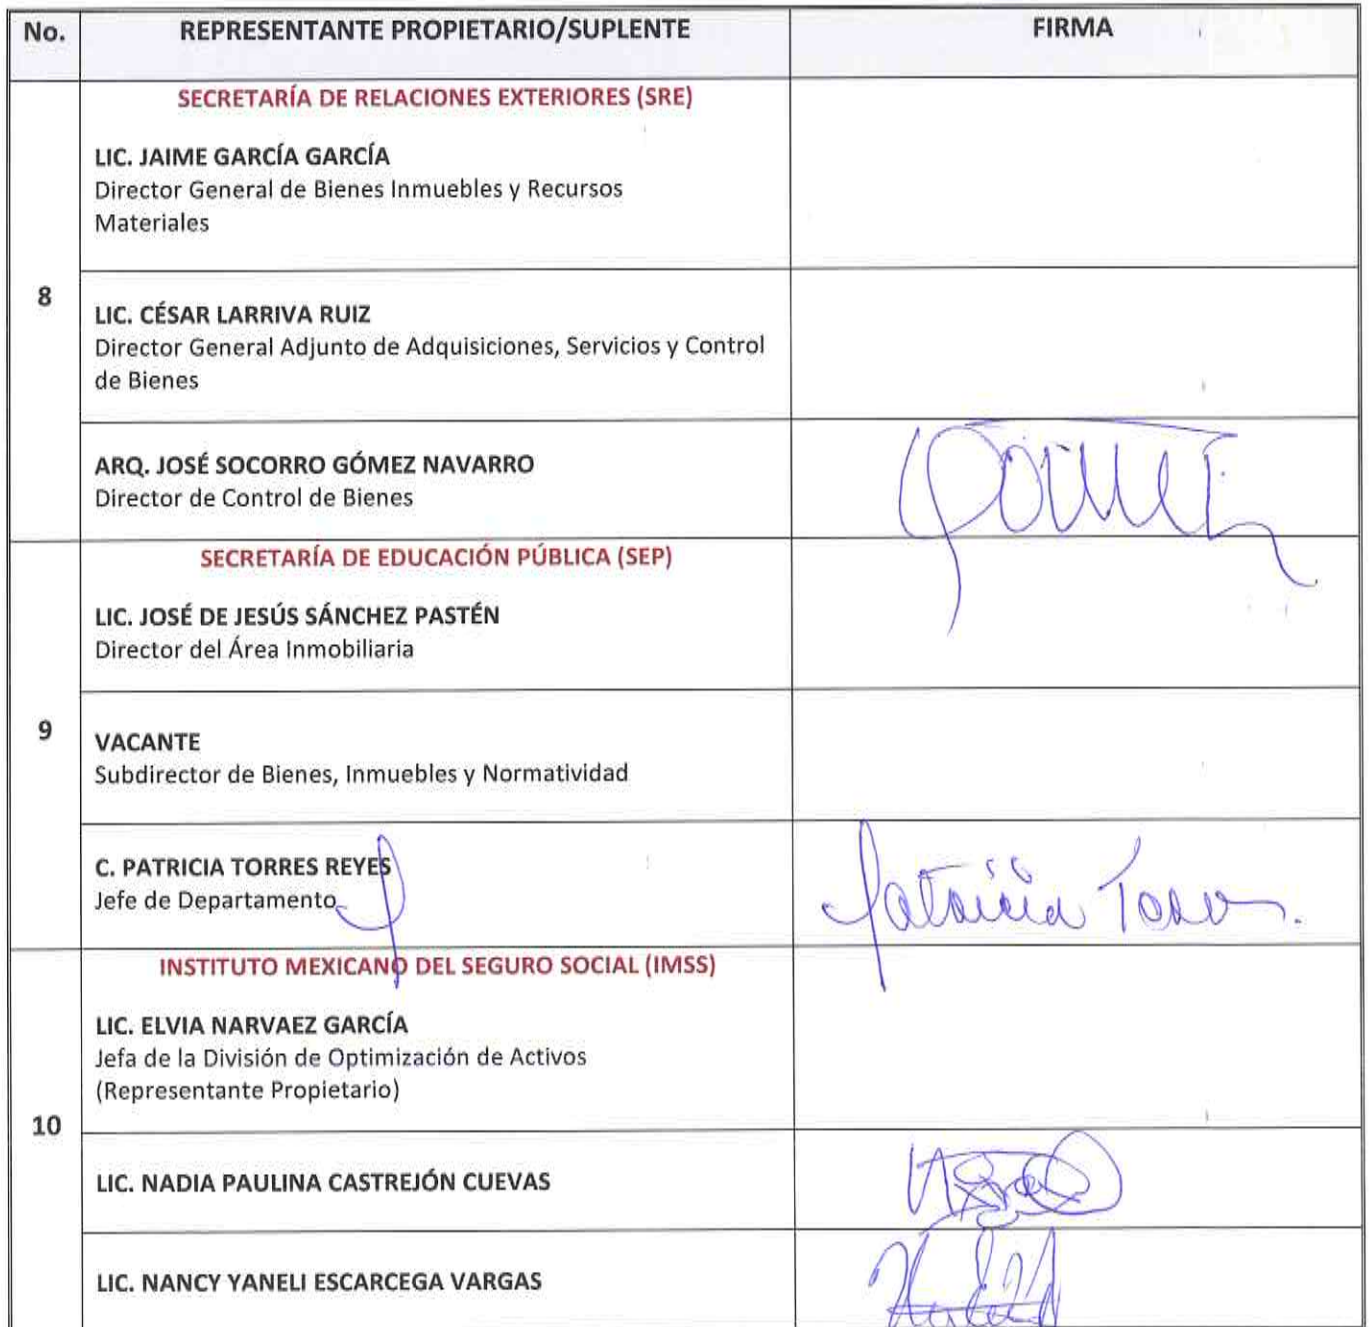 No. REPRESENTANTE PROPIETARIO/SUPLENTE FIRMA
SECRETARÍA DE RELACIONES EXTERIORES (SRE)
LIC. JAIME GARCÍA GARCÍA
Director General de Bienes Inmuebles y Recursos
Materiales
8
LIC. CÉSAR LARRIVA RUIZ
Director General Adjunto de Adquisiciones, Servicios y Control
de Bienes
ARQ. JOSÉ SOCORRO GÓMEZ NAVARRO
Director de Control de Bienes
SECRETARÍA DE EDUCACIÓN PÚBLICA (SEP)
LIC. JOSÉ DE JESÚS SÁNCHEZ PASTÉN
Director del Área Inmobiliaria
9
VACANTE
Subdirector de Bienes, Inmuebles y Normatividad
C. PATRICIA TORRES REYES
Jefe de Departamento
Patricia Torres.
INSTITUTO MEXICANO DEL SEGURO SOCIAL (IMSS)
LIC. ELVIA NARVAEZ GARCÍA
Jefa de la División de Optimización de Activos
(Representante Propietario)
10
LIC. NADIA PAULINA CASTREJÓN CUEVAS
LIC. NANCY YANELI ESCARCEGA VARGAS